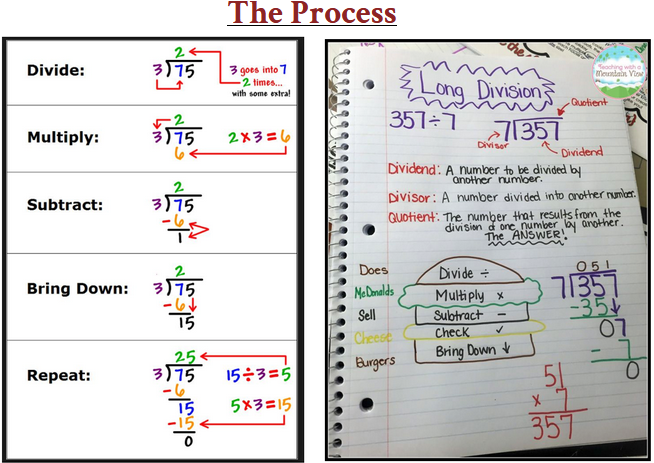 The Process
Divide:
2
3)75
3 goes into 7
2 times...
with some extra!
Multiply:
2
3)75
6
2×3=6
Subtract:
2
3)75
-6
1
Bring Down:
2
3)75
-6
15
Repeat:
25
3)75
-6
15
-15
0
15÷3=5
5×3=15
Teaching with a
Mountain View
Long Division
Quotient
357÷7
7)357
Divisor
Dividend
Dividend: A number to be divided by
another number.
Divisor: A number divided into another number.
Quotient: The number that results from the
division of one number by another.
The ANSWER!
Does
McDonalds
Sell
Cheese
Burgers
Divide ÷
Multiply x
Subtract –
Check ✓
Bring Down ↓
051
7)357
-35↓
07
- 7
0
51
x 7
357